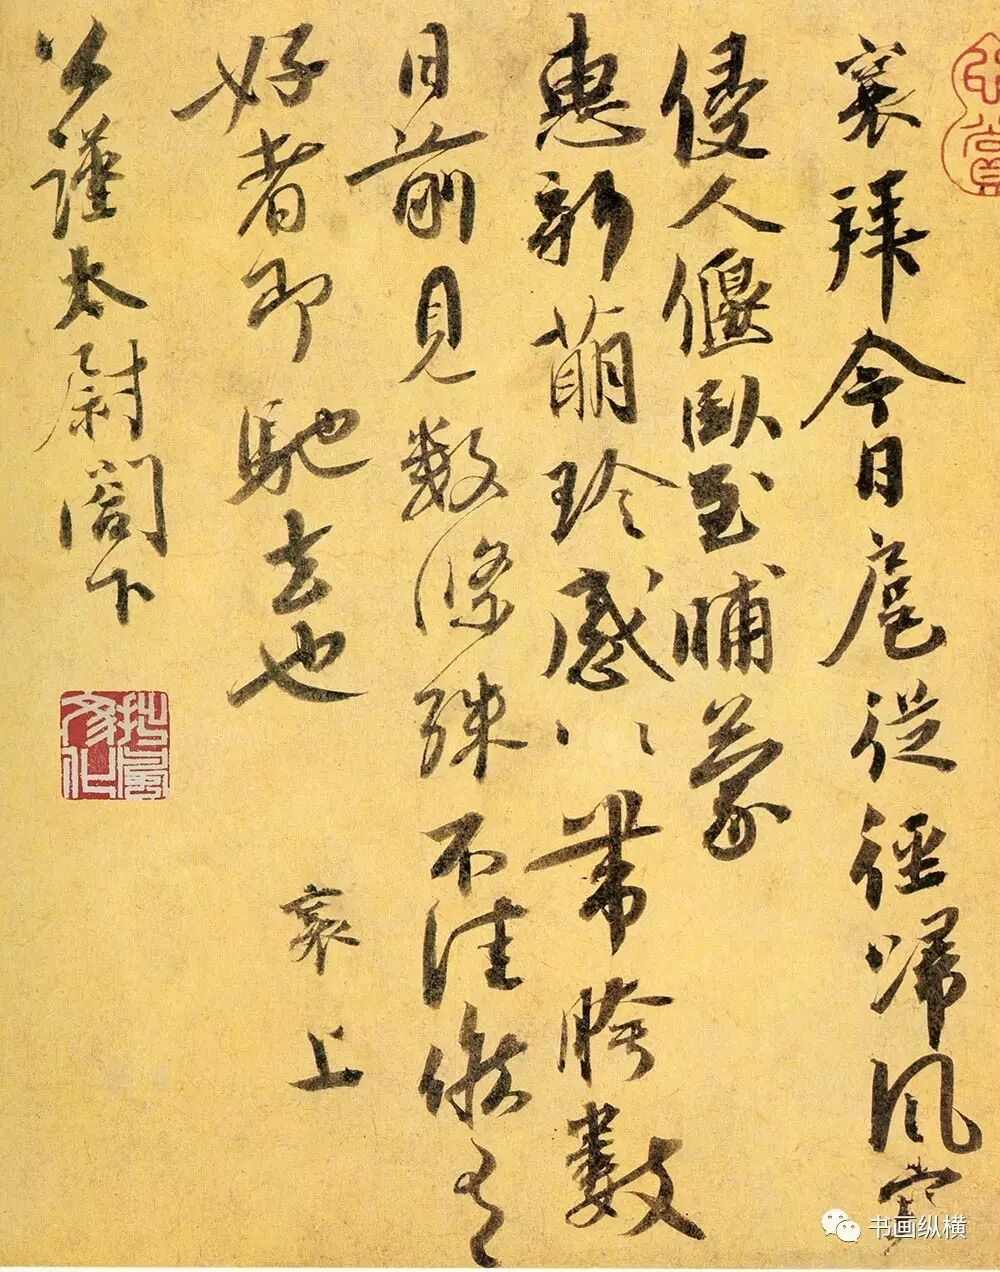 襄拜今日扈從徑歸風寒
侵人偃臥至晡蒙
惠新萌珍感〻帶胯數
日前見數條殊不佳候有
好者即馳去也
襄上
公謹太尉閣下
心賞
书画纵横